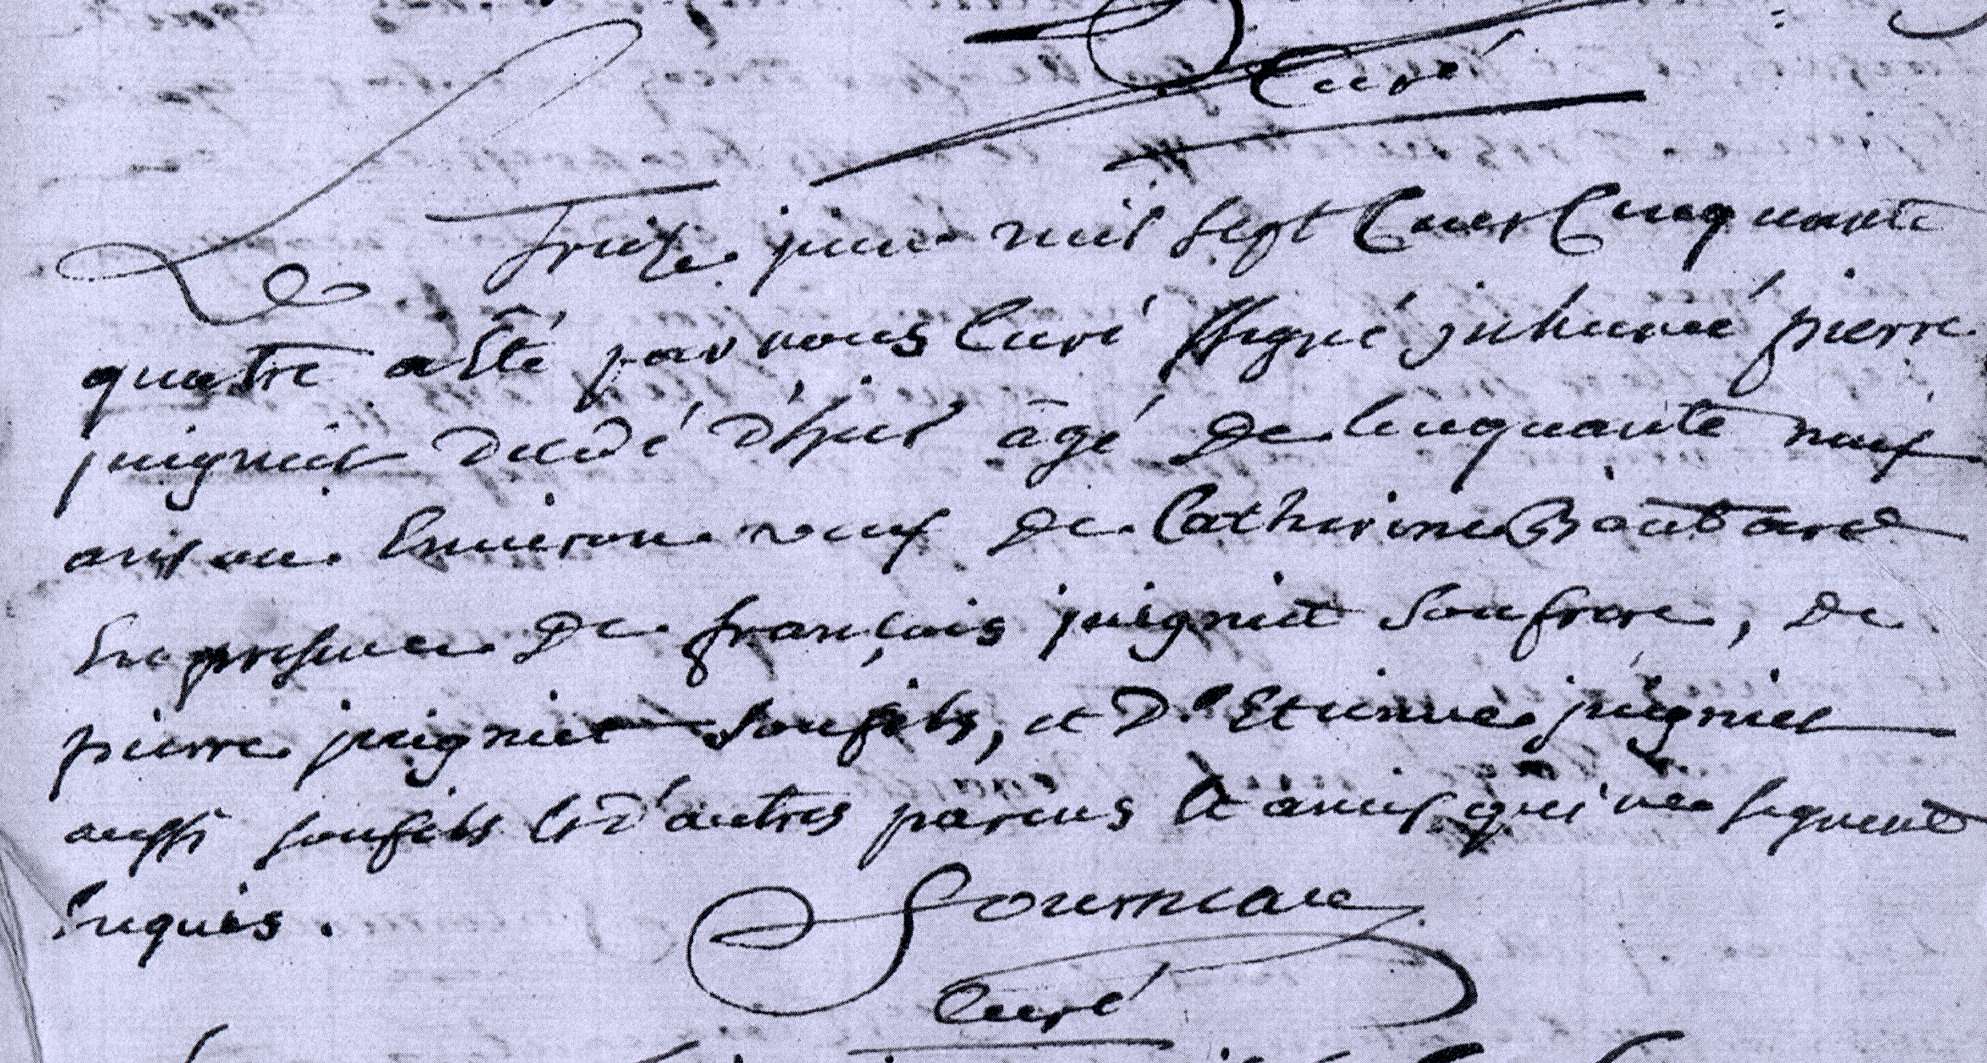 Curé
Le Treize juin mil sept Cent Cinquante
quatre a Eté par nous Curé ssigné inhumé pierre
juigniet decedé d'hier âgé de Cinquante neuf
ans ou Environ veuf de Catherine Boutard
En presence de françois juigniet son frere, de
pierre juigniet son fils, et d'Etienne juigniet
aussi son fils et d'autres parens et amis qui ne signent
Enquis.
Fourneau
Curé